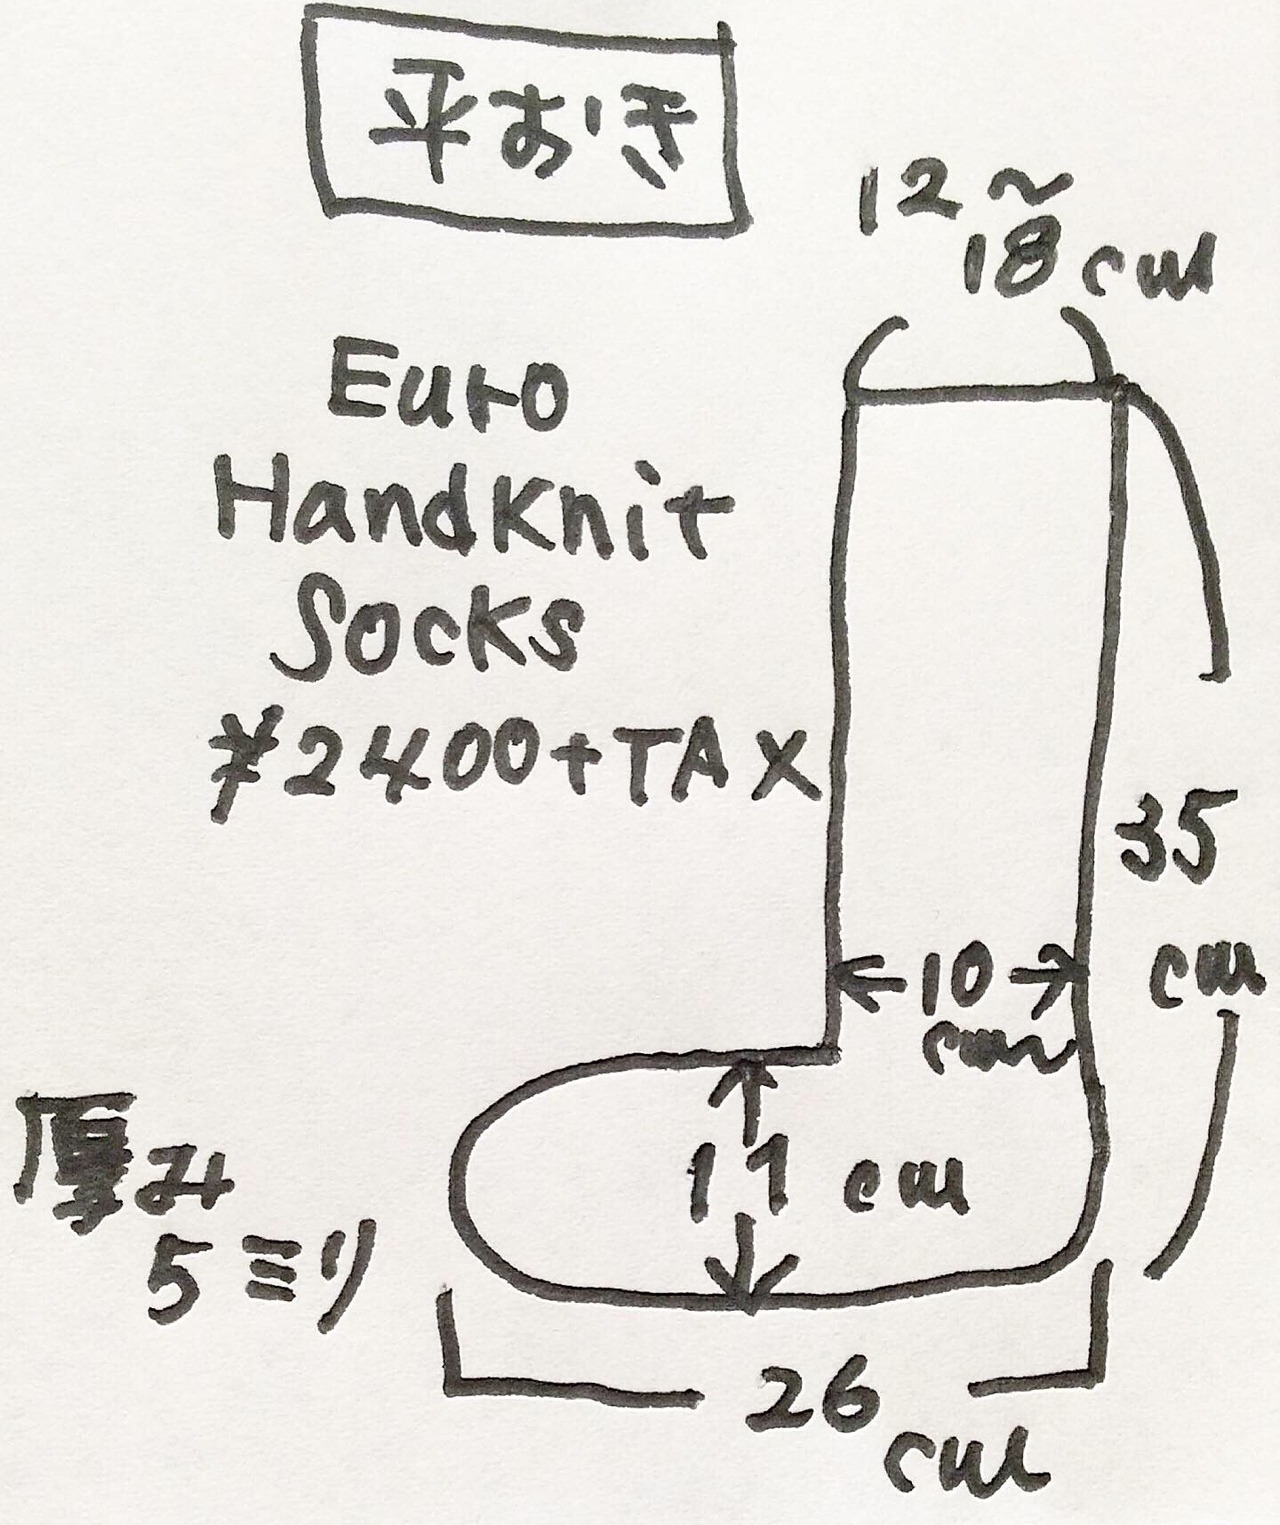 平おき
12～
18cm
Euro
HandKnit
Socks
¥2400+TAX
35
cm
10
cm
厚み
5ミリ
11cm
26
cm